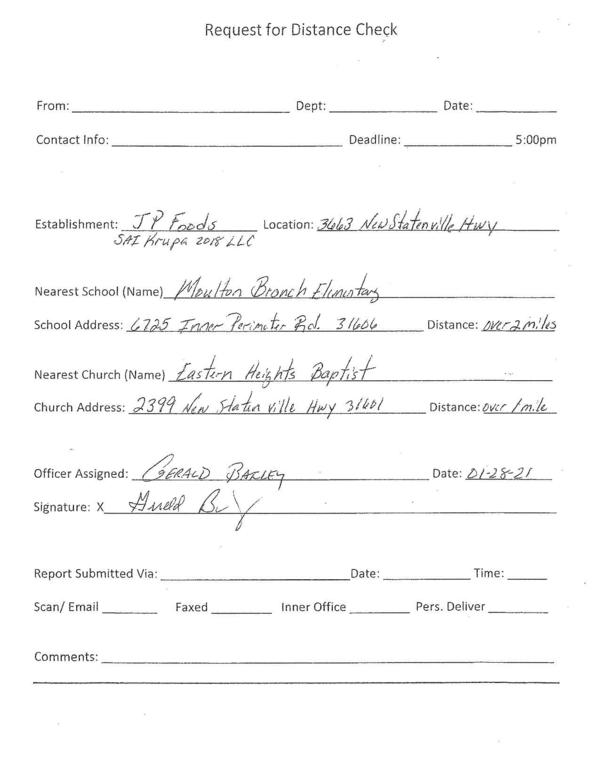 Request for Distance Check
From: Dept: Date:
Contact Info: Deadline: 5:00pm
Establishment: JP Foods Location: 3663 New Statenville Hwy
SAI Krupa 2018 LLC
Nearest School (Name) Moulton Branch Elementary
School Address: 6725 Inner Perimeter Rd. 31606 Distance: over 2 miles
Nearest Church (Name) Eastern Heights Baptist
Church Address: 2399 New Staten ville Hwy 31601 Distance: over 1 mile
Officer Assigned: GERALD BAILEY Date: 01-28-21
Signature: X
Report Submitted Via: Date: Time:
Scan/ Email Faxed Inner Office Pers. Deliver
Comments: